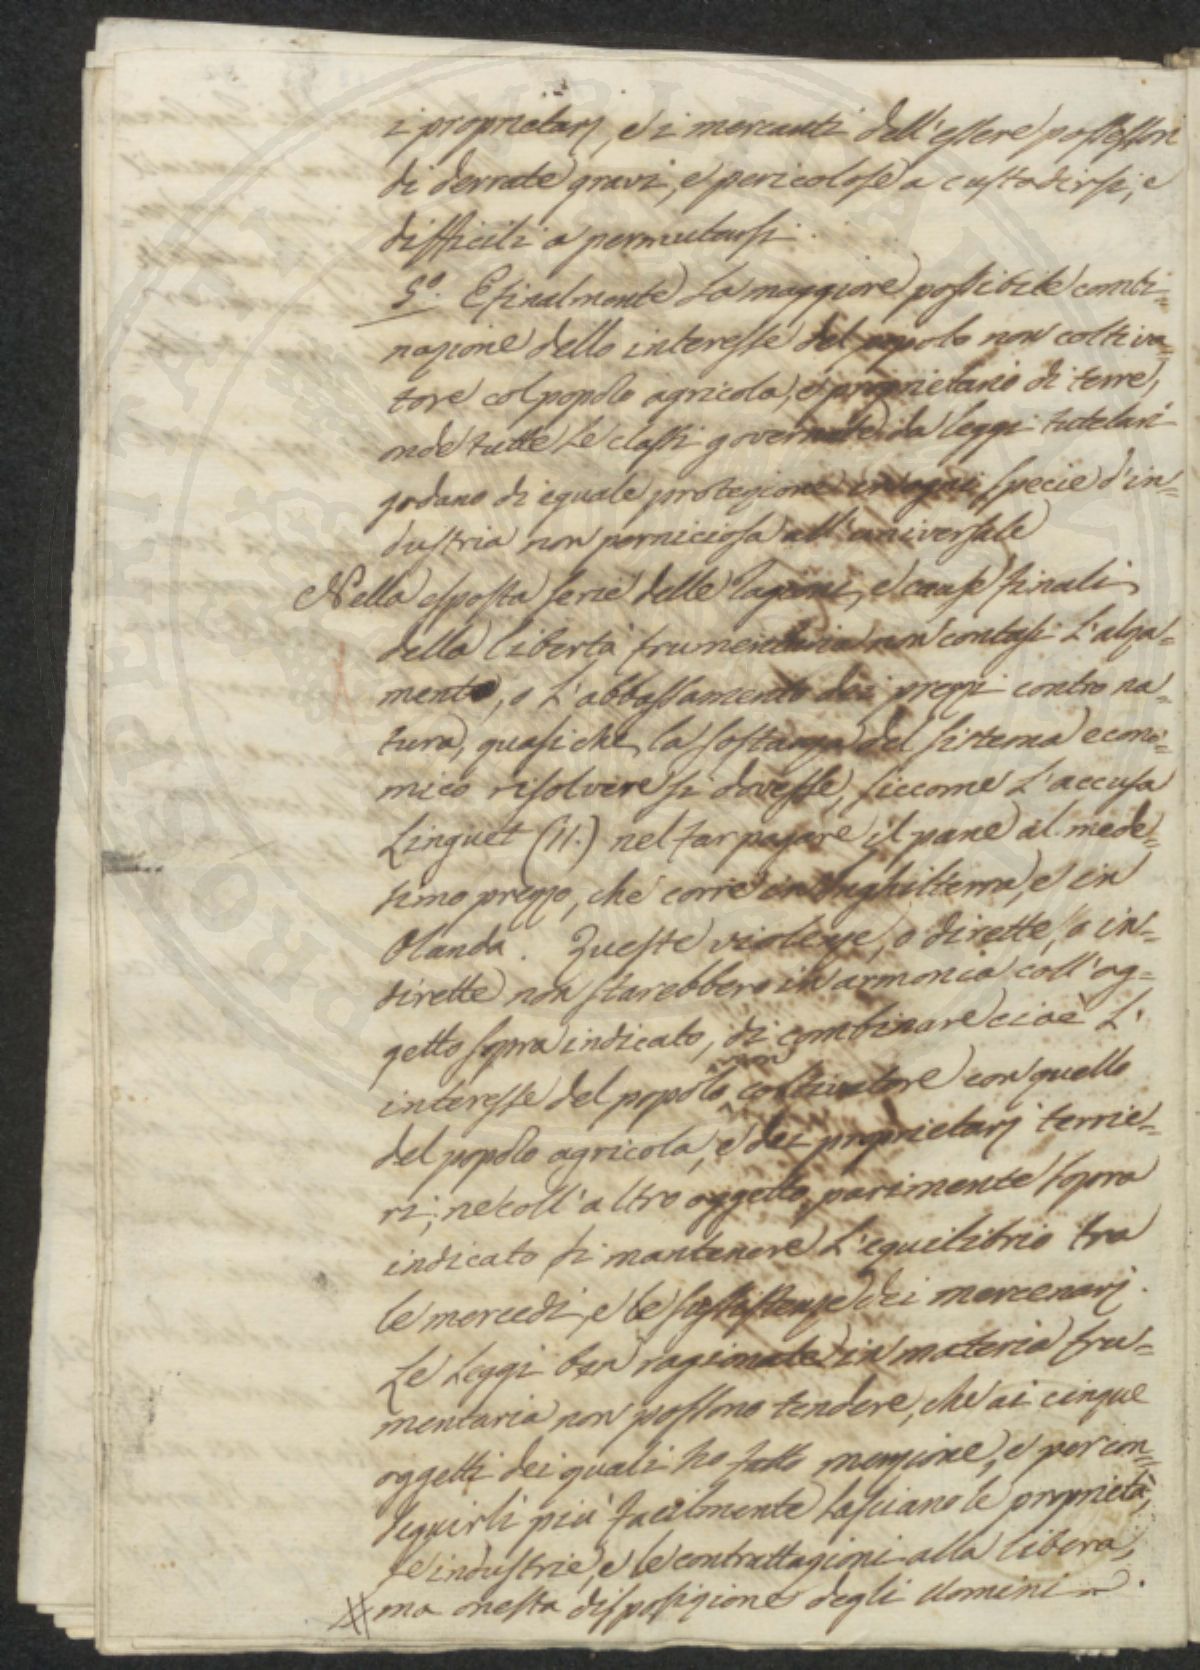 i proprietarj, e i mercanti dall'essere possessori
di derrate gravi, e pericolose a custodirsi, e
difficili a permutarsi.
5.° E finalmente la maggiore possibile combi=
nazione dello interesse del popolo non coltiva=
tore col popolo agricola, e proprietario di terre,
onde tutte le classi governate da leggi tutelari
godano di eguale protezione in ogni specie d'in=
dustria non perniciosa all'universale
Nella esposta serie delle ragioni, e cause finali
della libertà frumentaria non contasi l'alza=
mento, o l'abbassamento dei prezzi contro na=
tura, quasi che la sostanza del sistema econo=
mico risolvere si dovesse, siccome l'accusa
Linguet (11.) nel far pagare il pane al mede=
simo prezzo, che corre in Inghilterra, e in
Olanda. Queste violenze, o dirette, o in=
dirette non starebbero in armonia coll'og=
getto sopra indicato, di combinare cioè l'
interesse del popolo non coltivatore con quello
del popolo agricola, e dei proprietarj terrie=
ri; ne coll'altro oggetto parimente sopra
indicato di mantenere l'equilibrio tra
le mercedi, e le sussistenze dei mercenarj.
Le Leggi ben ragionate in materia fru=
mentaria non possono tendere, che ai cinque
oggetti dei quali ho fatto menzione, e per con=
seguirli più facilmente lasciano le proprietà,
e industrie, e le contrattazioni alla libera,
ma onesta disposizione degli uomini.